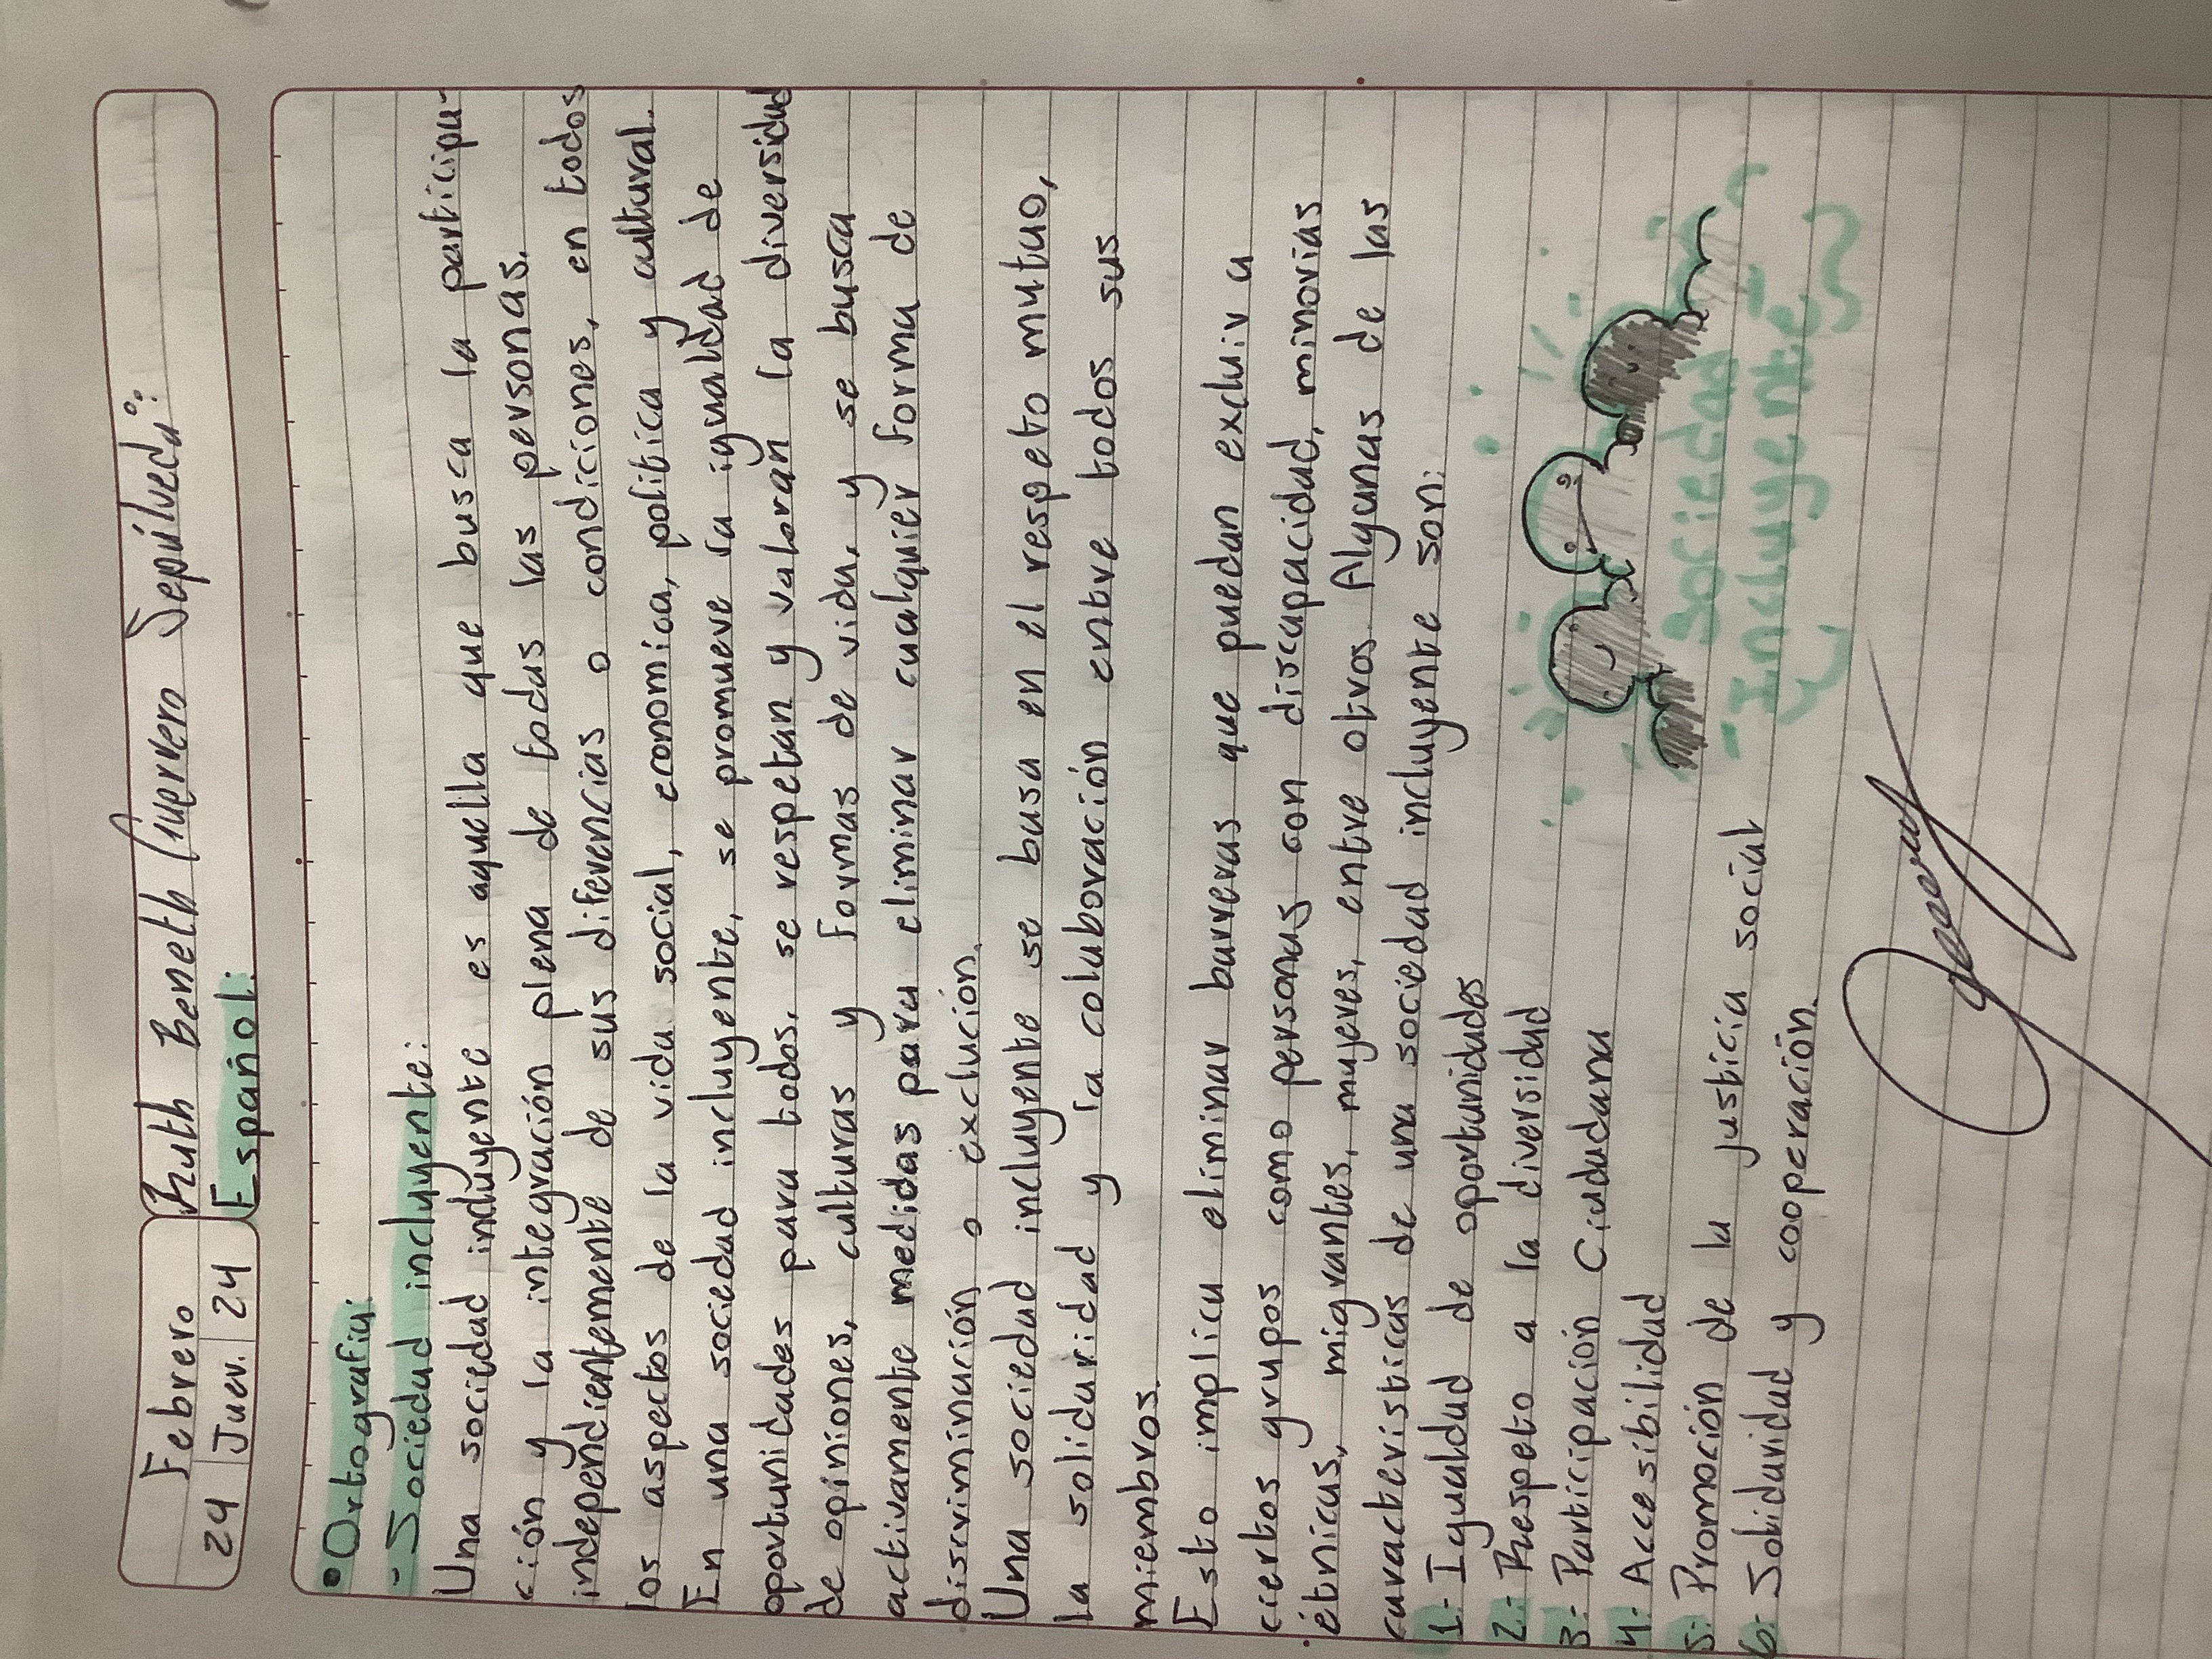 Febrero
24 Juev. 24
Ruth Beneth Guerrero Sepúlveda:
Español:
• Ortografia:
- Sociedad incluyente:
Una sociedad incluyente es aquella que busca la participa-
ción y la integración plena de todas las personas.
independientemente de sus diferencias o condiciones, en todos
los aspectos de la vida social, economica, politica y cultural.
En una sociedad incluyente, se promueve la igualdad de
oportunidades para todos, se respetan y valoran la diversidad
de opiniones, culturas y formas de vida, y se busca
activamente medidas para eliminar cualquier forma de
discriminación o exclución.
Una sociedad incluyente se basa en el respeto mutuo,
la solidaridad y la colaboración entre todos sus
miembros.
Esto implica eliminar barreras que puedan excluir a
ciertos grupos como personas con discapacidad, minorias
étnicas, migrantes, mujeres, entre otros. Algunas de las
caracteristicas de una sociedad incluyente son:
1.- Igualdad de oportunidades
2.- Respeto a la diversidad
3.- Participación Ciudadana
4.- Accesibilidad
5.- Promoción de la justicia social
6.- Solidaridad y cooperación.
Sociedad
Incluyente